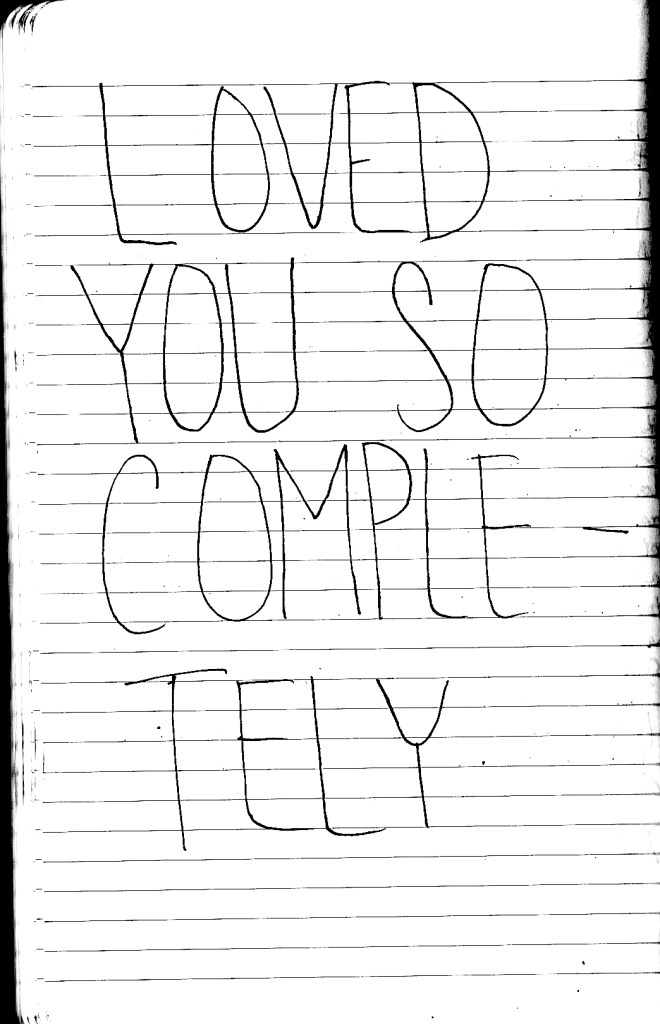 LOVED
YOU SO
COMPLE-
TELY